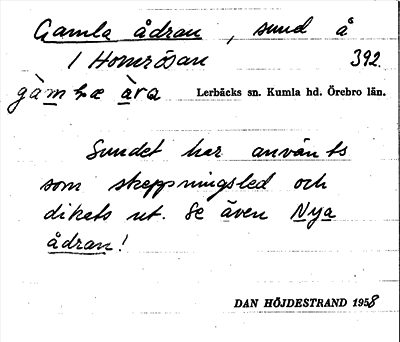 Gamla ådran, sund å
1 Homrösan 392.
gàmlæ àra Lerbäcks sn. Kumla hd. Örebro län.
Sundet har använts
som skeppningsled och
dikats ut. Se även Nya
ådran!
DAN HÖJDESTRAND 1958